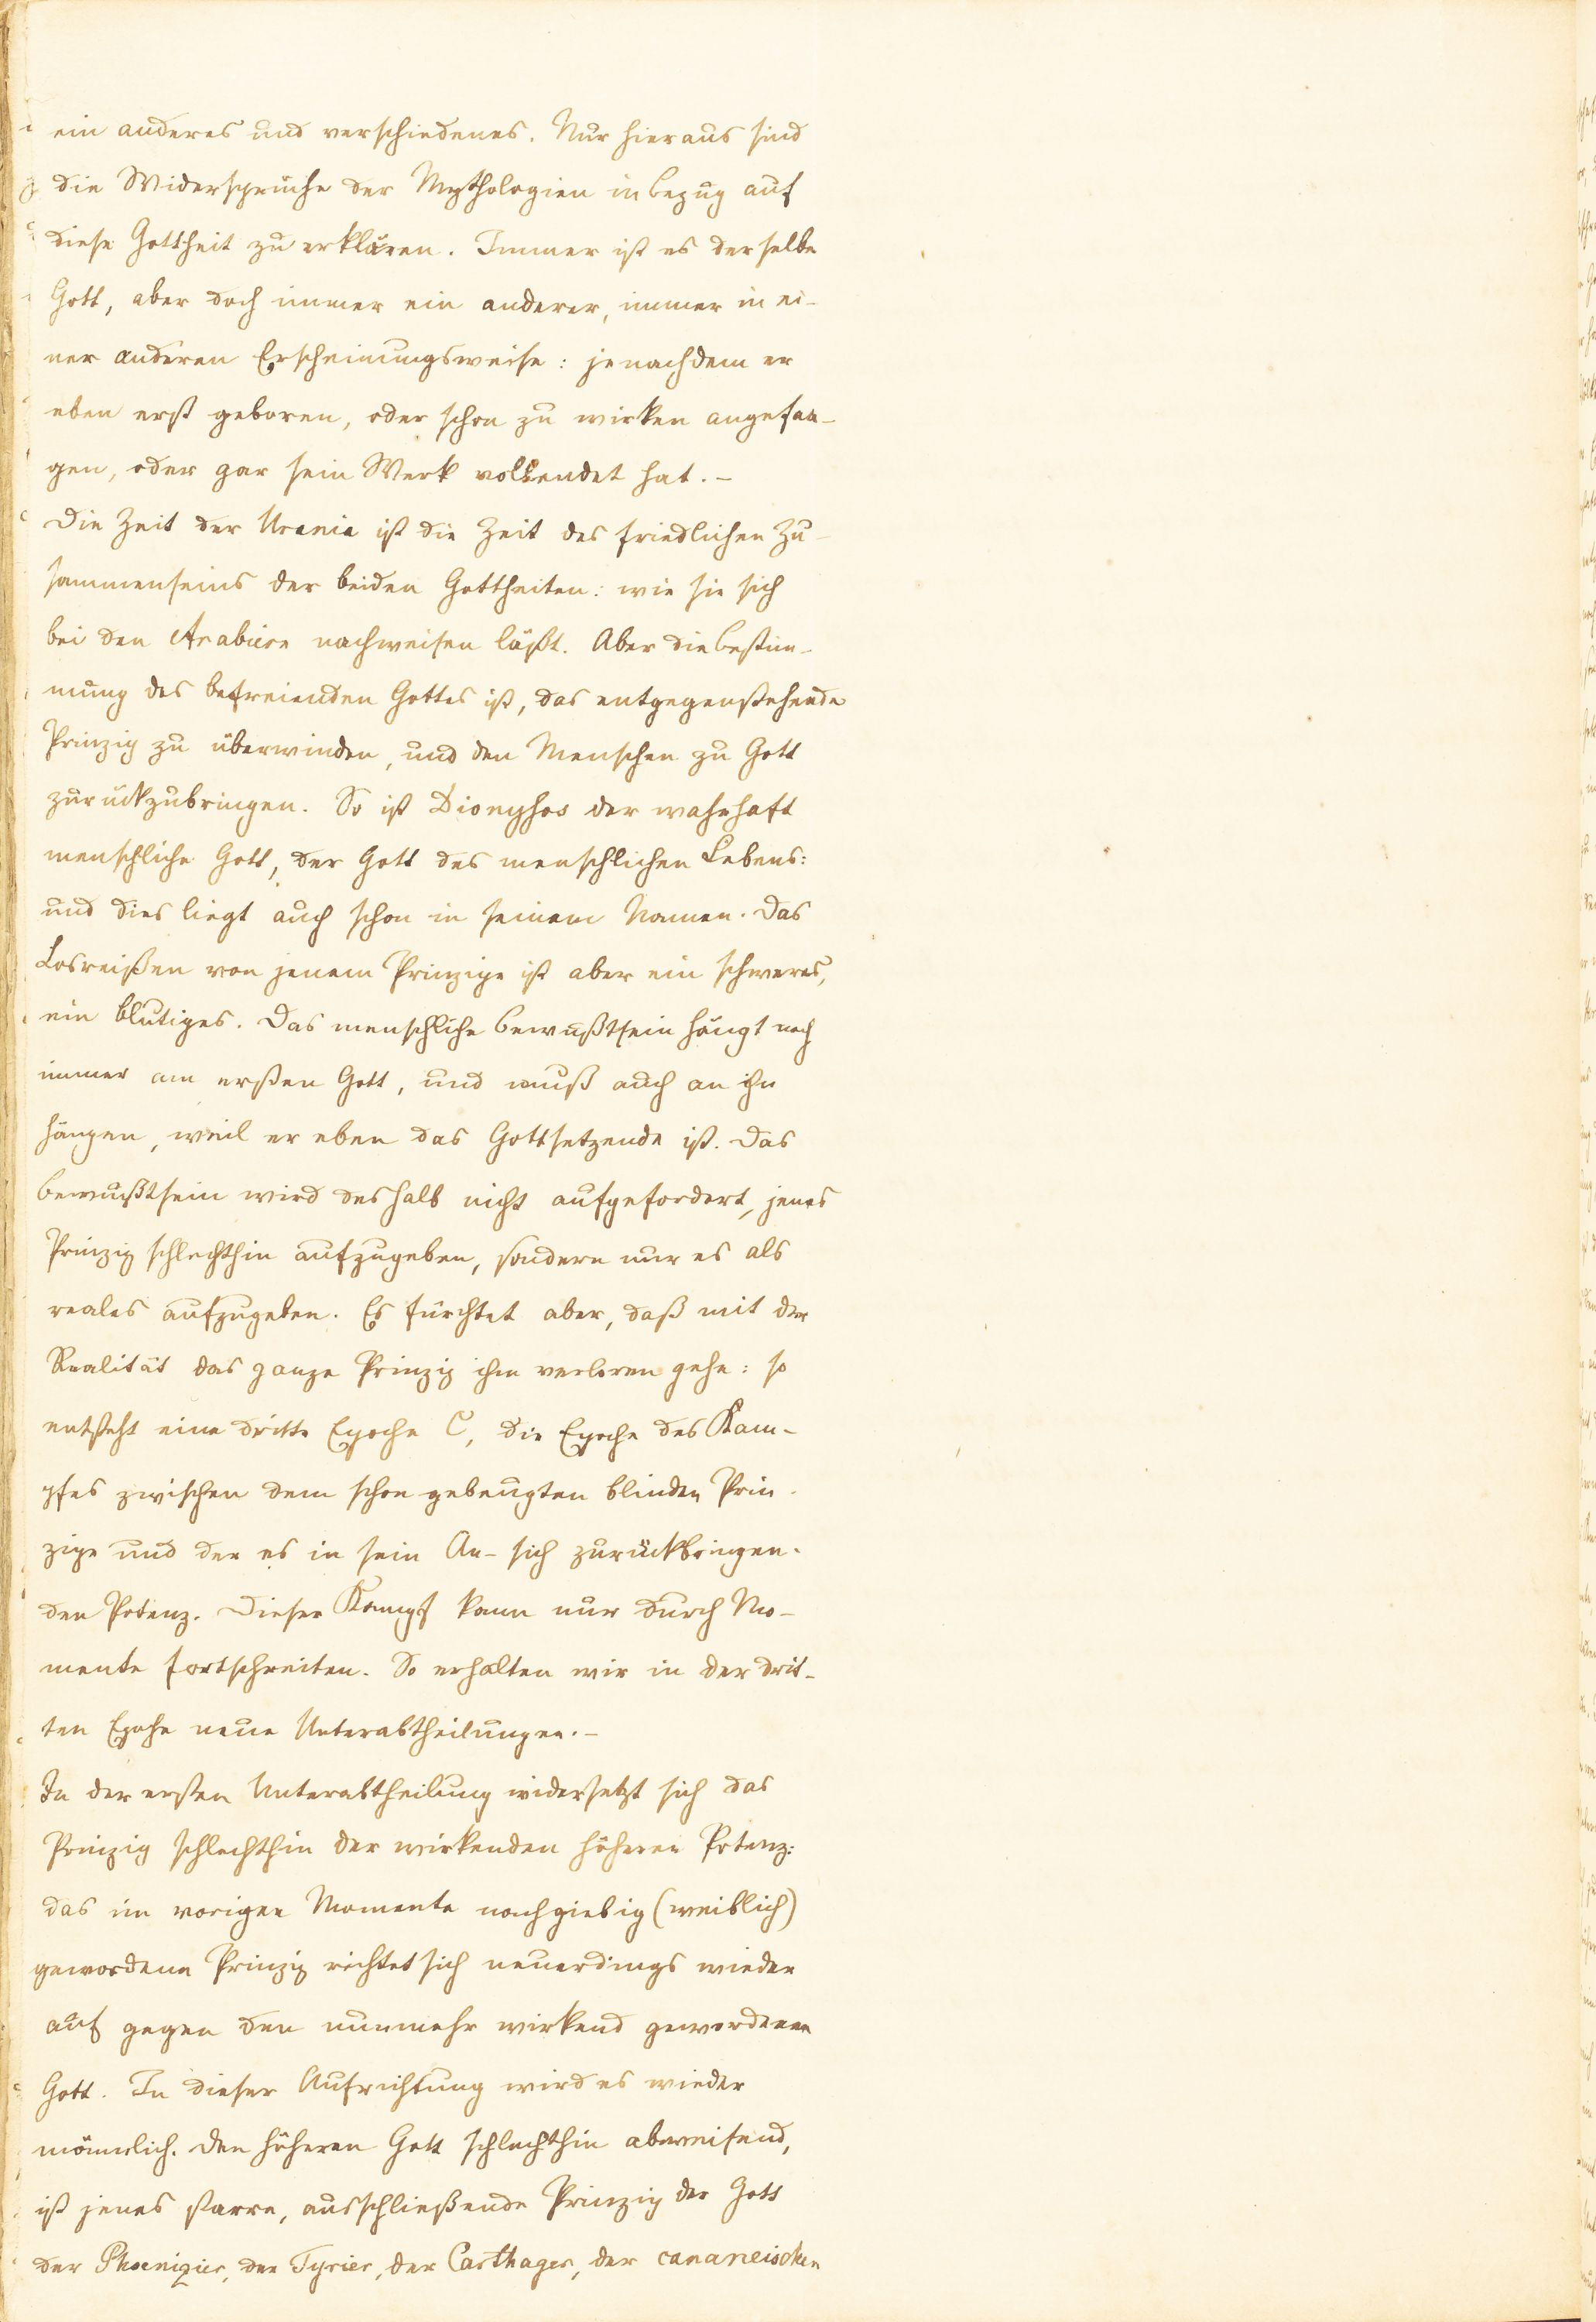 ein anderes und verschiedenes. Nur hieraus sind
die Widersprüche der Mythologien in bezug auf
diese Gottheit zu erklären. Immer ist es derselbe
Gott, aber doch immer ein anderer, immer in ei-
ner anderen Erscheinungsweise: jenachdem er
eben erst geboren, oder schon zu wirken angefan-
gen, oder gar sein Werk vollendet hat. –
Die Zeit der Urania ist die Zeit des friedlichen Zu-
sammenseins der beiden Gottheiten: wie sie sich
bei den Arabiern nachweisen läßt. Aber die bestim-
mung des befreienden Gottes ist, das entgegenstehende
Prinzip zu überwinden, und den Menschen zu Gott
zurückzubringen. So ist Dionysos der wahrhaft
menschliche Gott, der Gott des menschlichen Lebens:
und dies liegt auch schon in seinem Namen. Das
Losreißen von jenem Prinzipe ist aber ein schweres,
ein blutiges. Das menschliche bewußtsein hängt noch
immer am ersten Gott, und muß auch an ihn
hängen, weil er eben das Gottsetzende ist. Das
bewußtsein wird deshalb nicht aufgefordert, jenes
Prinzip schlechthin aufzugeben, sondern nur es als
reales aufzugeben. Es fürchtet aber, daß mit der
Realität das ganze Prinzip ihm verloren gehe: so
entsteht eine dritte Epoche C, die Epoche des Kam-
pfes zwischen dem schon gebeugten blinden Prin-
zipe und der es in sein An-sich zurückbringen-
den Potenz. Dieser Kampf kann nur durch Mo-
mente fortschreiten. So erhalten wir in der drit-
ten Epoche neue Unterabtheilungen. –
In der ersten Unterabtheilung widersetzt sich das
Prinzip schlechthin der wirkenden höheren Potenz:
das im vorigen Momente nachgiebig (weiblich)
gewordene Prinzip richtet sich neuerdings wieder
auf gegen den nunmehr wirkend gewordenen
Gott. In dieser Aufrichtung wird es wieder
männlich. Den höheren Gott schlechthin abweisend,
ist jenes starre, ausschließende Prinzip der Gott
der Phoenizier, der Tyrier, der Carthager, der cananeischen